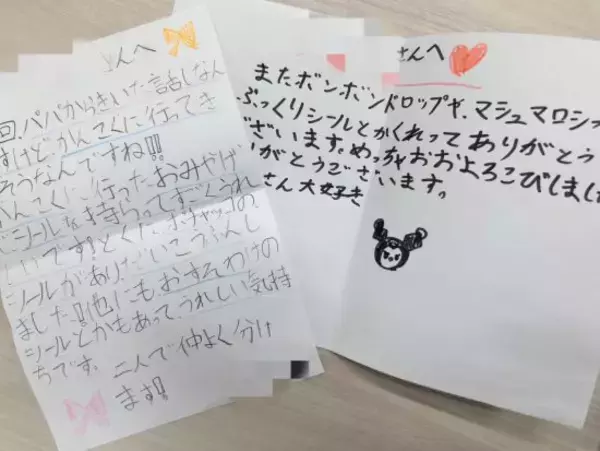 んへ
回、パパからきいた話しなん
すけど かんこくに行ってき
そうなんですね!!
かんこくに行ったおみやげ
シールを持らってすごくうれ
しいです!とくにポチャッコの
シールがありだいこうふんし
ました!!他にもおすそわけの
シールとかもあって、うれしい気持
ちです。二人で仲よく分け
ます!!
さんへ
またボンボンドロップや、マシュマロシ
ぷっくりシールとかくれってありがとう
ございます。めっちゃおおよろこびしまし
がとうございます。
さん大好き